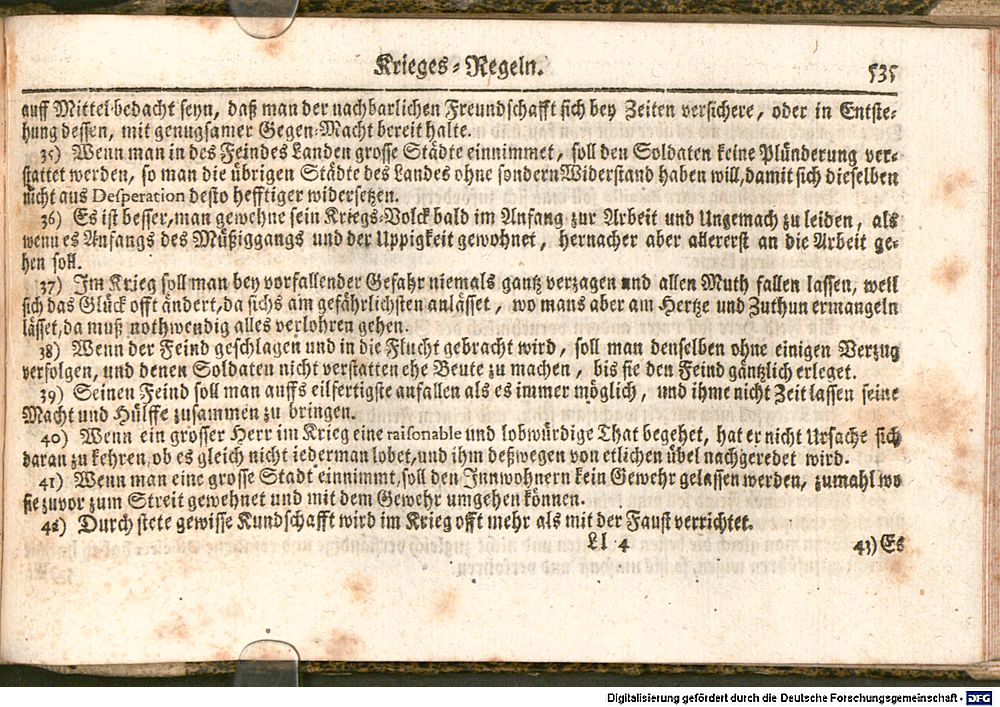 Krieges-Regeln. 535
auff Mittel bedacht seyn, daß man der nachbarlichen Freundschafft sich bey Zeiten versichere, oder in Entste-
hung dessen, mit genugsamer Gegen-Macht bereit halte.
35) Wenn man in des Feindes Landen grosse Städte einnimmet, soll den Soldaten keine Plünderung ver-
stattet werden, so man die übrigen Städte des Landes ohne sondern Widerstand haben will, damit sich dieselben
nicht aus Desperation desto hefftiger widersetzen.
36) Es ist besser, man gewehne sein Kriegs-Volck bald im Anfang zur Arbeit und Ungemach zu leiden, als
wenn es Anfangs des Müßiggangs und der Uppigkeit gewohnet, hernacher aber allererst an die Arbeit ge-
hen soll.
37) Im Krieg soll man bey vorfallender Gefahr niemals gantz verzagen und allen Muth fallen lassen, weil
sich das Glück offt ändert, da sichs am gefährlichsten anlässet, wo mans aber am Hertze und Zuthun ermangeln
lässet, da muß nothwendig alles verlohren gehen.
38) Wenn der Feind geschlagen und in die Flucht gebracht wird, soll man denselben ohne einigen Verzug
verfolgen, und denen Soldaten nicht verstatten ehe Beute zu machen, bis sie den Feind gäntzlich erleget.
39) Seinen Feind soll man auffs eilfertigste anfallen als es immer möglich, und ihme nicht Zeit lassen seine
Macht und Hülffe zusammen zu bringen.
40) Wenn ein grosser Herr im Krieg eine raisonable und lobwürdige That begehet, hat er nicht Ursache sich
daran zu kehren, ob es gleich nicht iederman lobet, und ihm deßwegen von etlichen übel nachgeredet wird.
41) Wenn man eine grosse Stadt einnimmt, soll den Innwohnern kein Gewehr gelassen werden, zumahl wo
sie zuvor zum Streit gewehnet und mit dem Gewehr umgehen können.
42) Durch stete gewisse Kundschafft wird im Krieg offt mehr als mit der Faust verrichtet.
Ll 4 43) Es
Digitalisierung gefördert durch die Deutsche Forschungsgemeinschaft - DFG